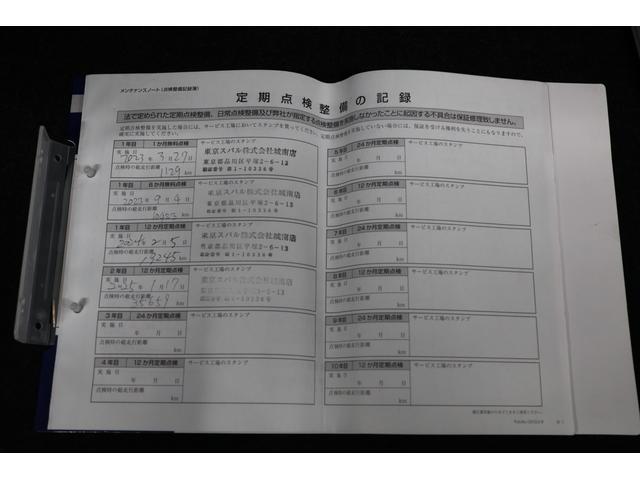 メンテナンスノート(点検整備記録簿)
定期点検整備の記録
法で定められた定期点検整備、日常点検整備及び弊社が指定する点検整備を実施しなかったことに起因する不具合は保証修理致しません。
1年目 1か月無料点検
サービス工場のスタンプ
実施日
2023年3月27日
東京スバル株式会社城南店
東京都品川区平塚2-6-13
点検時の総走行距離
1129 km
1年目 6か月無料点検
サービス工場のスタンプ
実施日
2023年9月4日
東京スバル株式会社城南店
東京都品川区平塚2-6-13
点検時の総走行距離
km
1年目 12か月定期点検
サービス工場のスタンプ
実施日
2024年2月5日
東京スバル株式会社城南店
東京都品川区平塚2-6-13
点検時の総走行距離
19245 km
2年目 12か月定期点検
サービス工場のスタンプ
実施日
2025年1月17日
東京スバル株式会社城南店
東京都品川区平塚2-6-13
点検時の総走行距離
35659 km
3年目 24か月定期点検
サービス工場のスタンプ
実施日
年 月 日
点検時の総走行距離
km
4年目 12か月定期点検
サービス工場のスタンプ
実施日
年 月 日
点検時の総走行距離
km
5年目 24か月定期点検
サービス工場のスタンプ
実施日
年 月 日
点検時の総走行距離
km
6年目 12か月定期点検
サービス工場のスタンプ
実施日
年 月 日
点検時の総走行距離
km
7年目 24か月定期点検
サービス工場のスタンプ
実施日
年 月 日
点検時の総走行距離
km
8年目 12か月定期点検
サービス工場のスタンプ
実施日
年 月 日
点検時の総走行距離
km
9年目 24か月定期点検
サービス工場のスタンプ
実施日
年 月 日
点検時の総走行距離
km
10年目 12か月定期点検
サービス工場のスタンプ
実施日
年 月 日
点検時の総走行距離
km